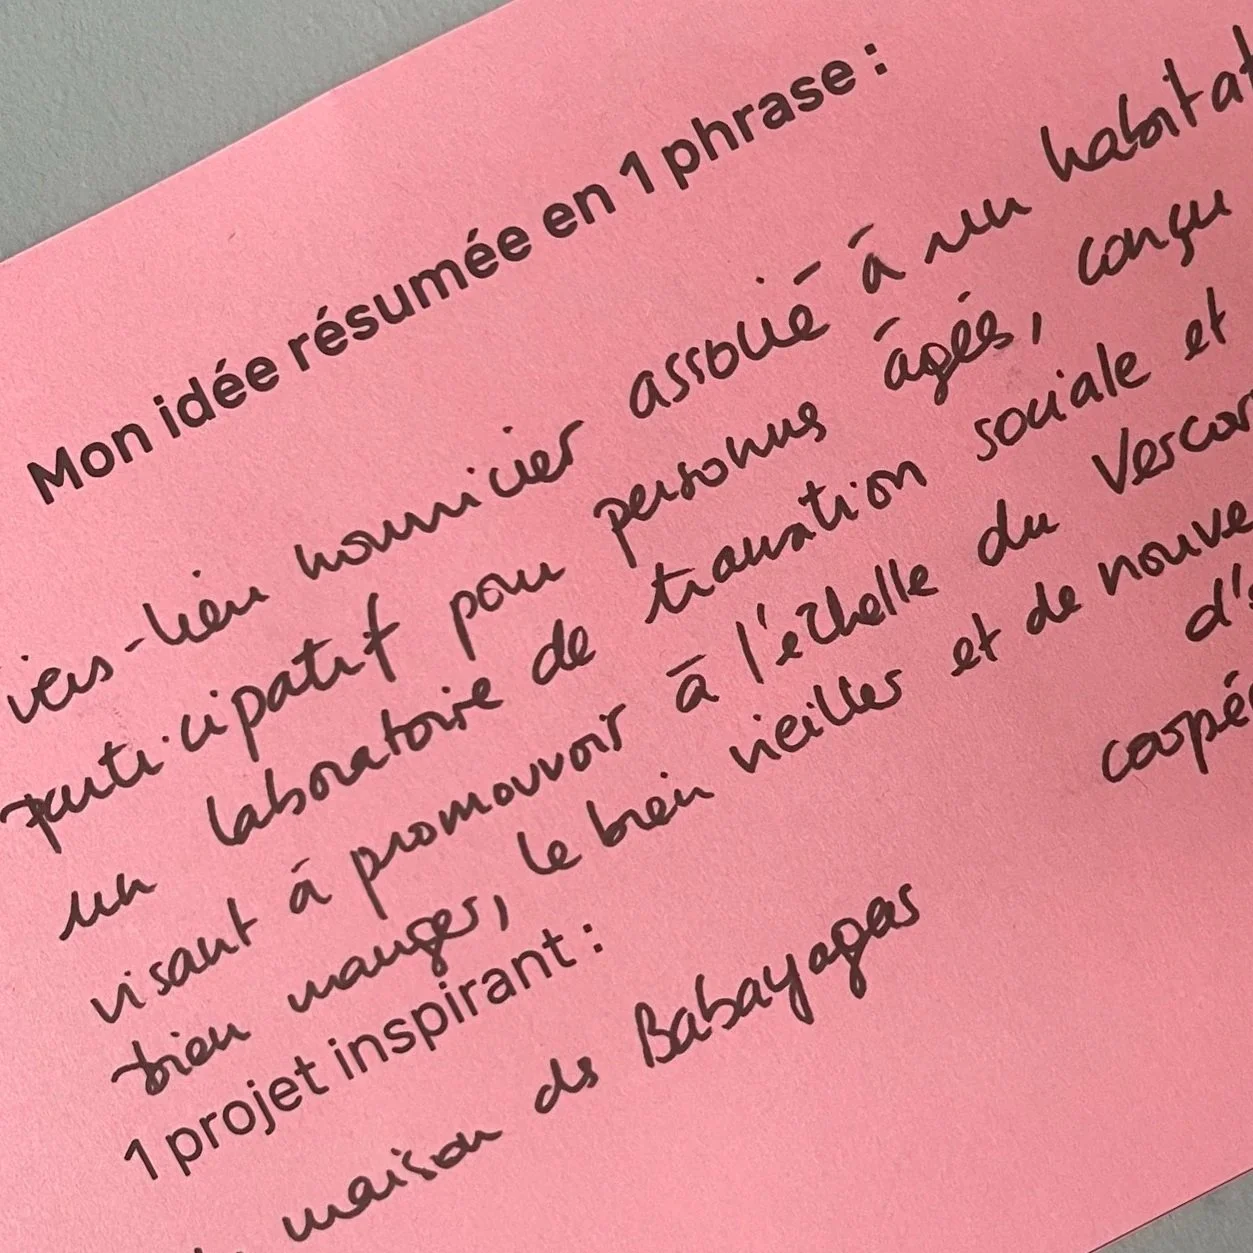 Mon idée résumée en 1 phrase :
tiers-lieu nourricier associé à un habitat
participatif pour personnes âgées, conçu
un laboratoire de transition sociale et
visant à promouvoir à l'échelle du Vercor
bien manger, le bien vieillir et de nouve
d'
coopé
1 projet inspirant :
maison des Babayagas